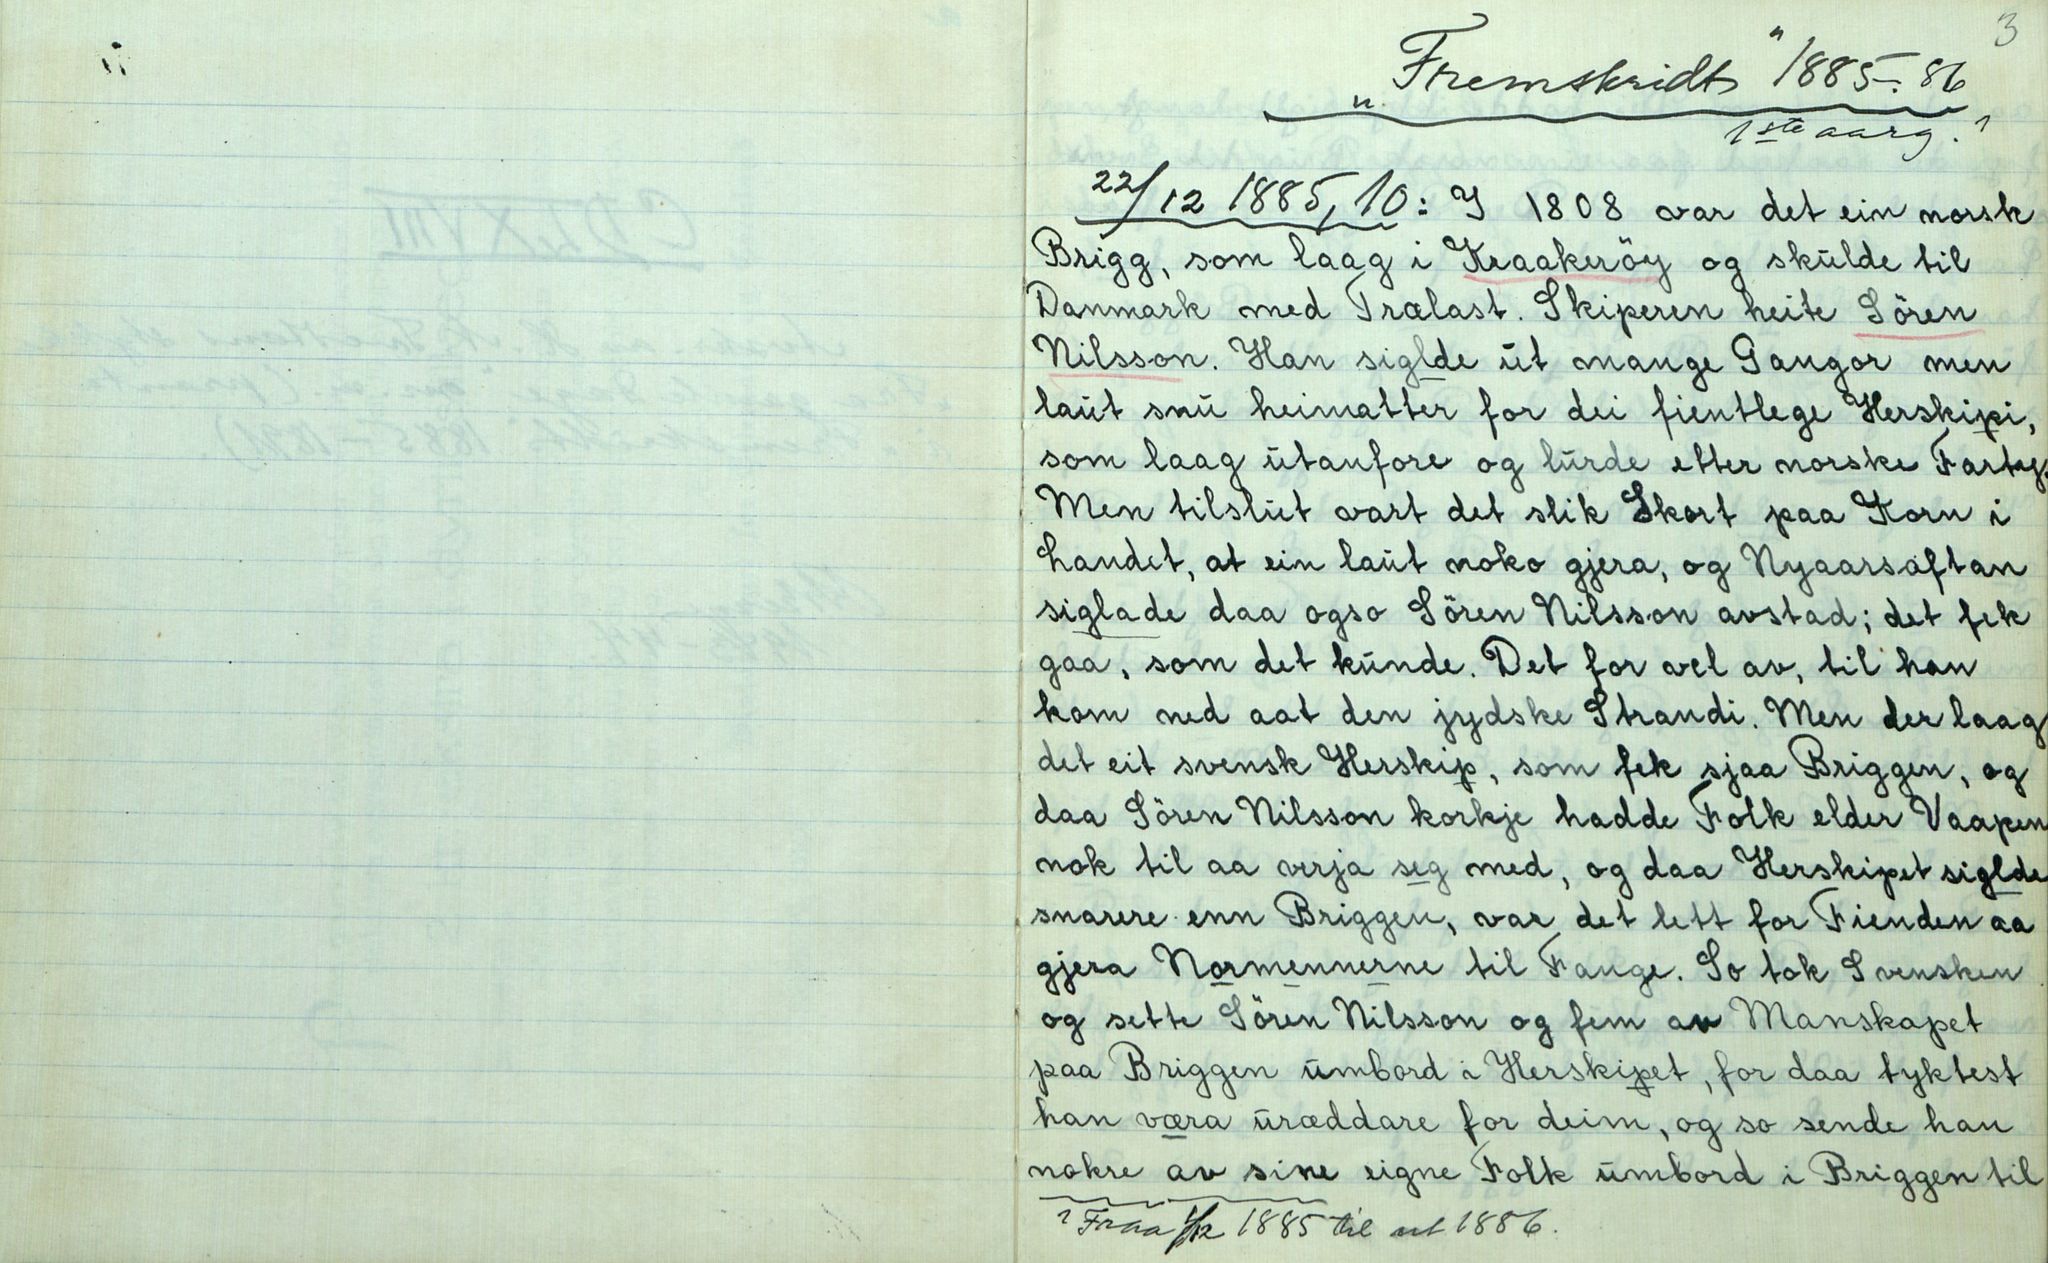 3
„Fremskridt" 1885-86
1ste aarg.1
22/12 1885, 10: I 1808 var det ein norsk
Brigg, som laag i Kraakeröy og skulde til
Danmark med Trælast. Skiperen heite Sören
Nilsson. Han siglde ut mange Gangor men
laut snu heimatter for dei fientlege Herskipi,
som laag utanfore og lurde etter norske Farty.
Men tilslut vart det slik Skort paa Korn i
Landet, at ein laut noko gjera, og Nyaarsaftan
siglade daa ogso Sören Nilsson avstad; det fek
gaa, som det kunde. Det for vel av, til han
kom ned aat den jydske Strandi. Men der laag
det eit svensk Herskip, som fek sjaa Briggen, og
daa Sören Nilsson korkje hadde Folk elder Vaapen
nok til aa verja seg med, og daa Herskipet siglde
snarere enn Briggen, var det lett for Fienden aa
gjera Normennerne til Fange. So tok Svensken
og sette Sören Nilsson og fem av Manskapet
paa Briggen umbord i Herskipet, for daa tyktest
han væra uræddare for deim, og so sende han
nokre av sine eigne Folk umbord i Briggen til
1 Fraa 1/12 1885 til ut 1886.